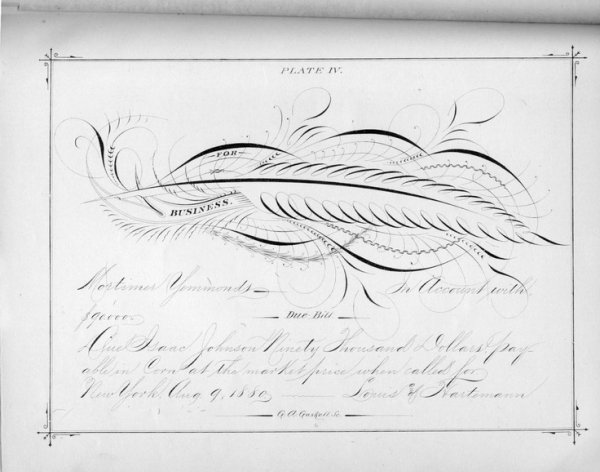 PLATE IV.
FOR
BUSINESS.
Mortimer Yommonds In Account with
$90000
Due Bill
Due Isaac Johnson Ninety Thousand Dollars, pay-
able in Corn at the market price when called for
New York, Aug 9, 1880, Louis Hartemann
G. A. Gaskell Sc.